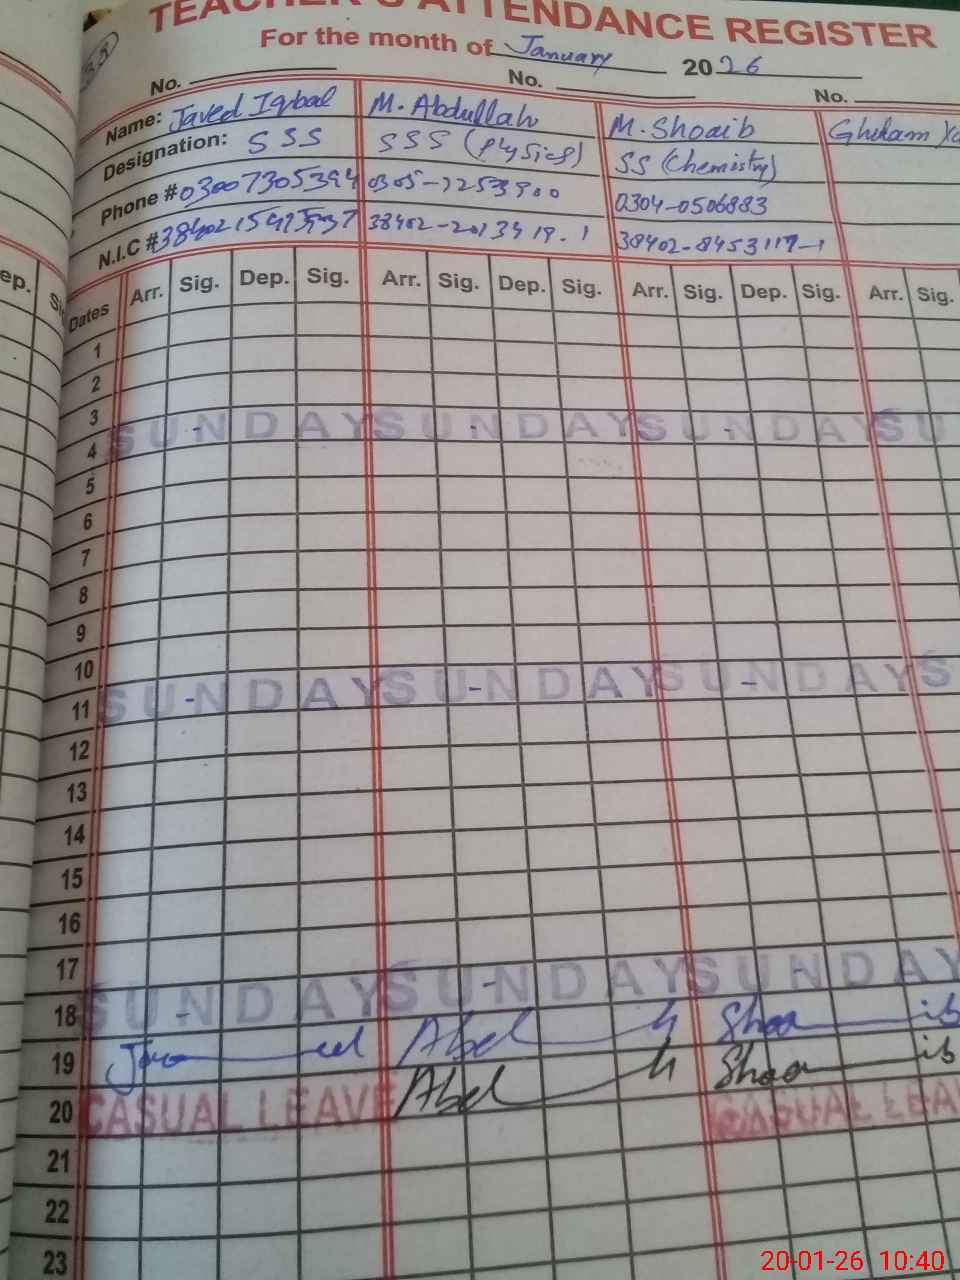 TEACHER'S ATTENDANCE REGISTER
For the month of January 2026
No. No. No.
Name: Javed Iqbal M. Abdullah M. Shoaib Ghulam
Designation: SSS SSS (Physics) SS (Chemistry)
Phone # 03007305394 0305-7253900 0304-0506883
N.I.C # 38402-2013419-1 38402-8453117-1
Dates Arr. Sig. Dep. Sig. Arr. Sig. Dep. Sig. Arr. Sig. Dep. Sig. Arr. Sig.
1
2
3
SUNDAY SUNDAY SUNDAY SU
4
5
6
7
8
9
10
SUNDAY SUNDAY SUNDAY S
11
12
13
14
15
16
17
SUNDAY SUNDAY SUNDAY
18
19 Javed Abdh Shoaib
20 CASUAL LEAVE Abdh Shoaib CASUAL LEA
21
22
23
20-01-26 10:40